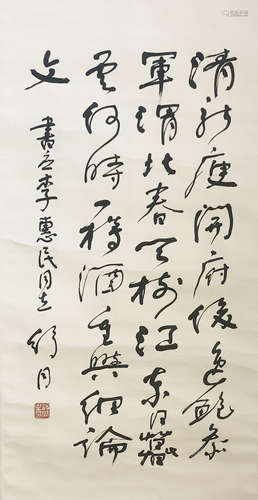 清新庾開府俊逸鮑參
軍渭北春天樹江東日暮
雲何時一樽酒重與細論
文
書李惠民同志
舒同